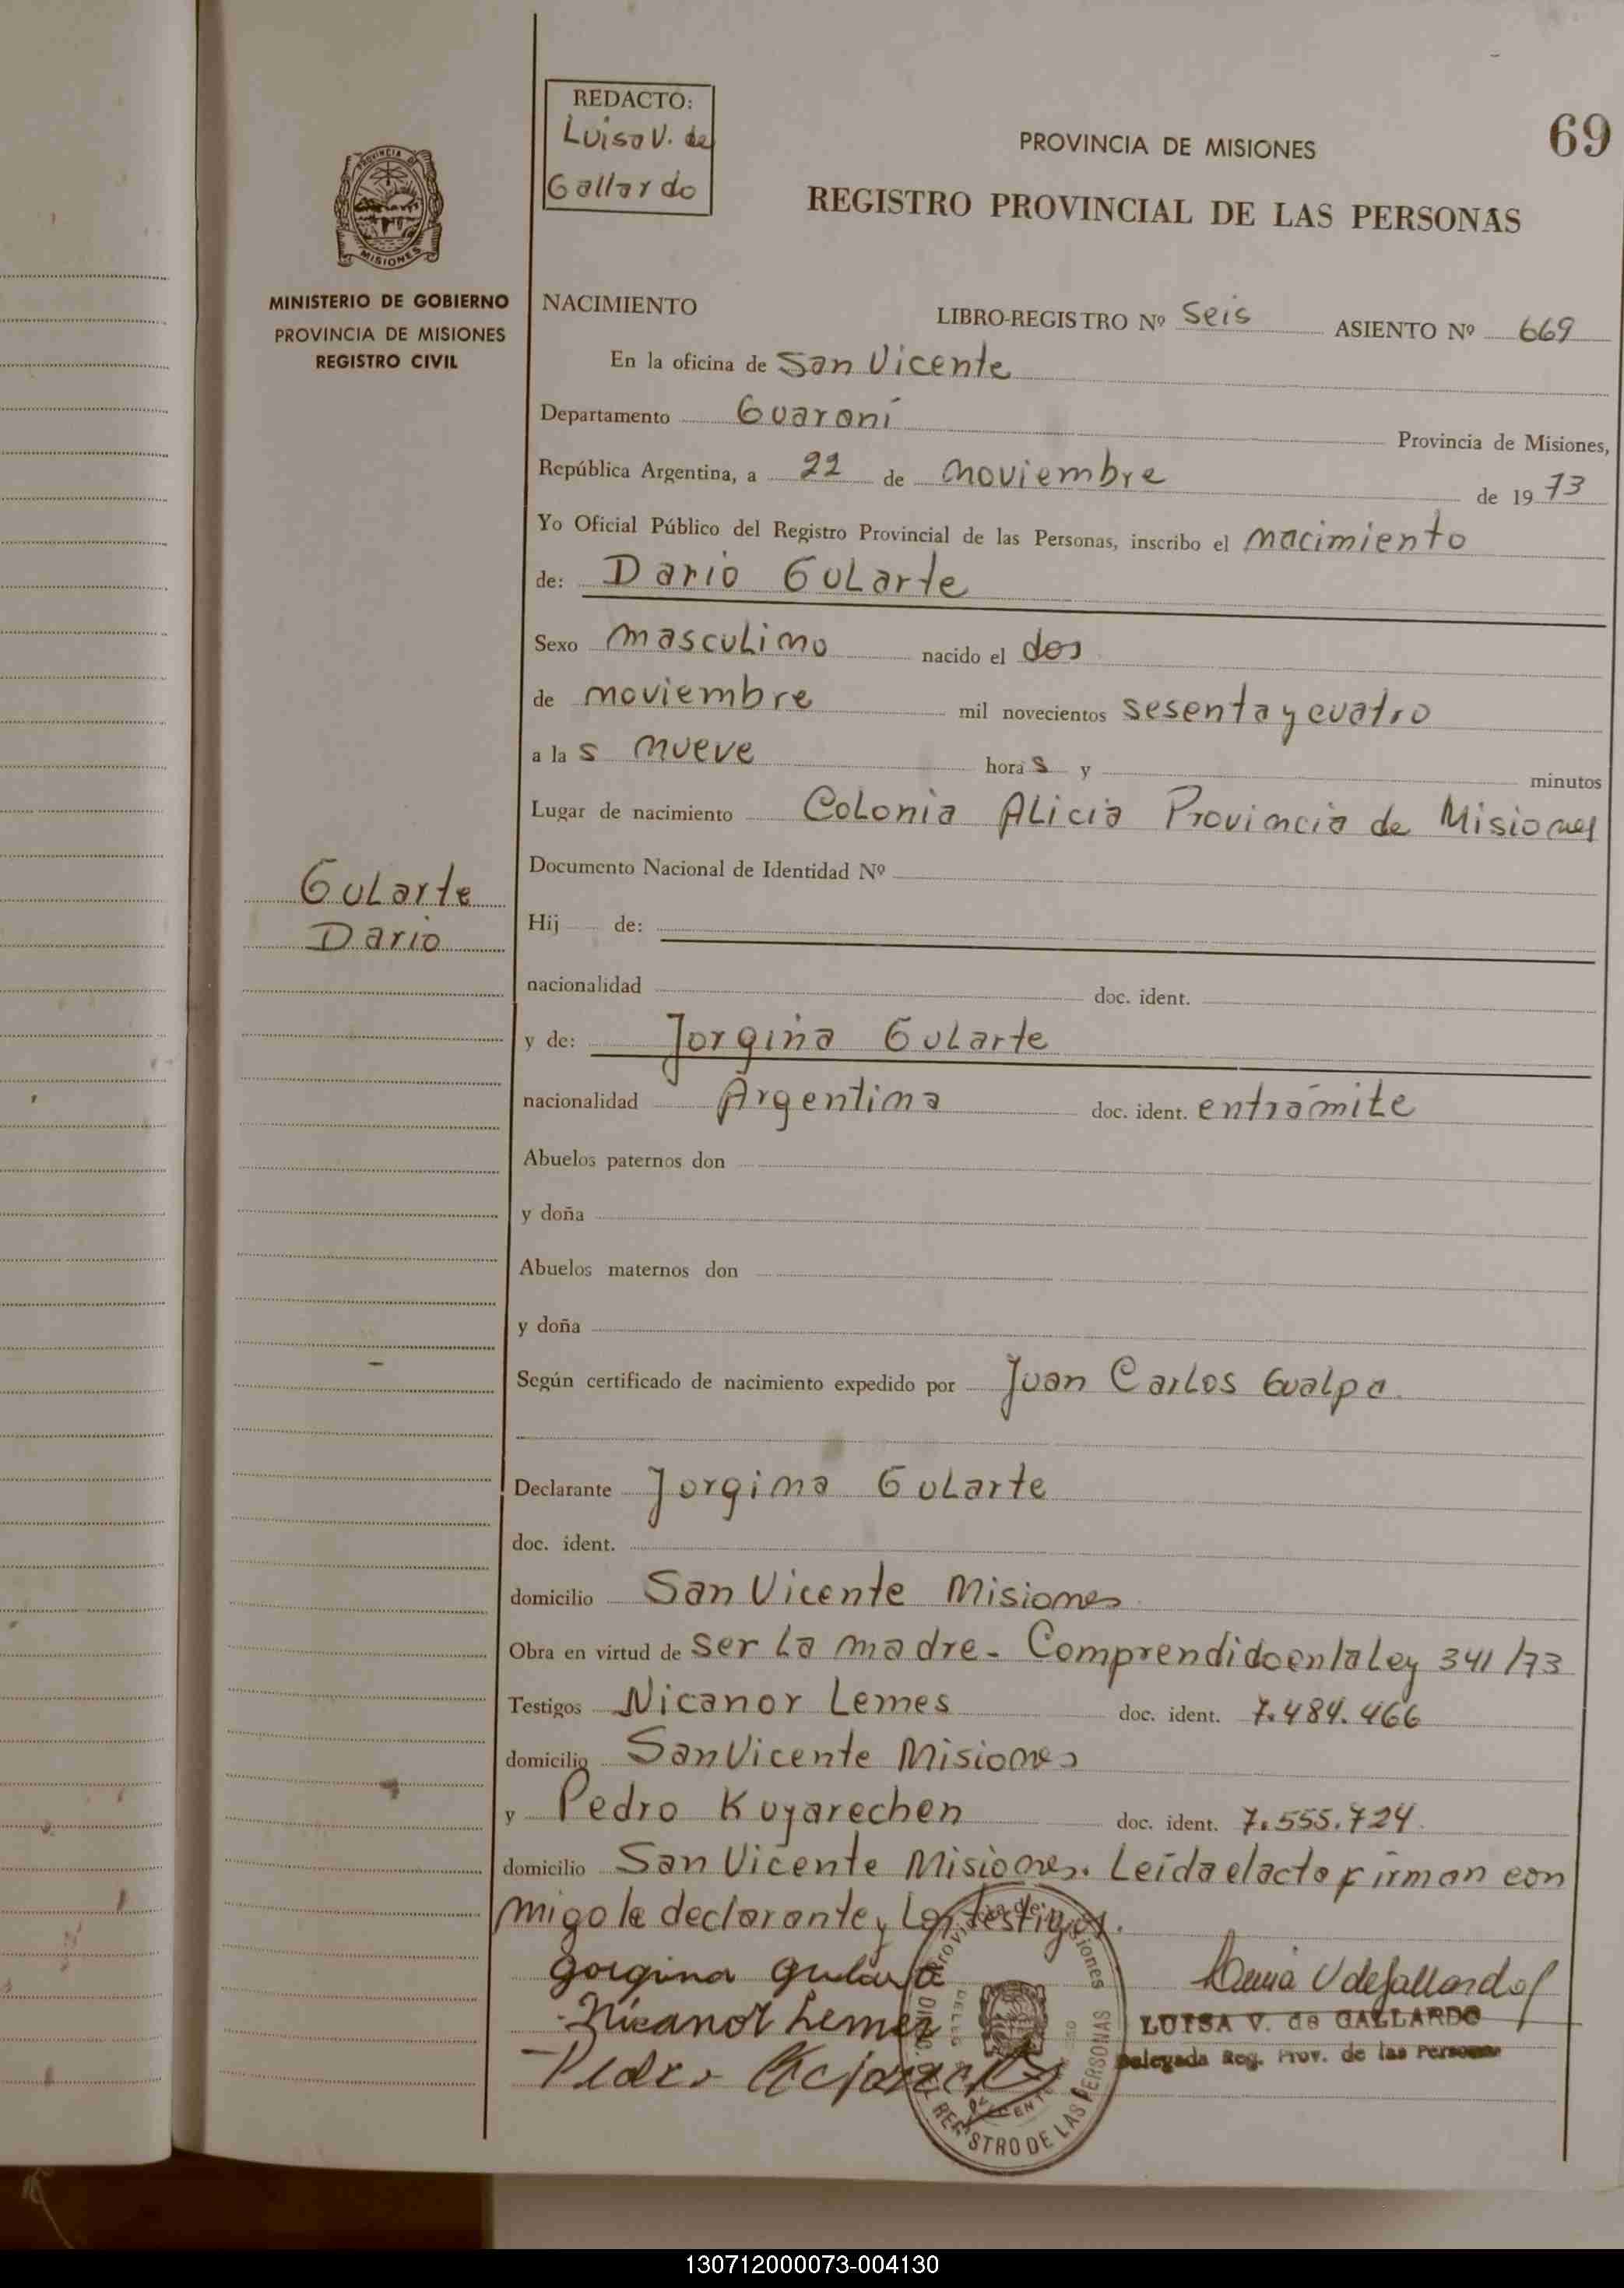 REDACTO:
Luisa V. de
Gallardo
69
PROVINCIA DE MISIONES
REGISTRO PROVINCIAL DE LAS PERSONAS
PROVINCIA DE
MISIONES
MINISTERIO DE GOBIERNO
PROVINCIA DE MISIONES
REGISTRO CIVIL
NACIMIENTO
LIBRO-REGISTRO Nº seis ASIENTO Nº 669
En la oficina de San Vicente
Departamento Guaraní Provincia de Misiones,
República Argentina, a 22 de noviembre de 1973
Yo Oficial Público del Registro Provincial de las Personas, inscribo el nacimiento
de: Dario Gularte
Sexo masculino nacido el dos
de noviembre mil novecientos sesenta y cuatro
a las nueve horas y minutos
Lugar de nacimiento Colonia Alicia Provincia de Misiones
Documento Nacional de Identidad Nº
Gularte
Dario
Hij de:
nacionalidad doc. ident.
y de: Jorgina Gularte
nacionalidad Argentina doc. ident. entramite
Abuelos paternos don
y doña
Abuelos maternos don
y doña
Según certificado de nacimiento expedido por Juan Carlos Gualpa.
Declarante Jorgina Gularte
doc. ident.
domicilio San Vicente Misiones
Obra en virtud de ser la madre - Comprendido en la Ley 341/73
Testigos Nicanor Lemes doc. ident. 7.484.466
domicilio San Vicente Misiones
y Pedro Kuyarechen doc. ident. 7.555.724
domicilio San Vicente Misiones. Leída el acto firman con
migo la declarante y los testigos.
Gorgina Gularte
Nicanor Lemes
Pedro
LUISA V. de GALLARDO
Delegada Reg. Prov. de las Personas
REGISTRO DE LAS PERSONAS
130712000073-004130